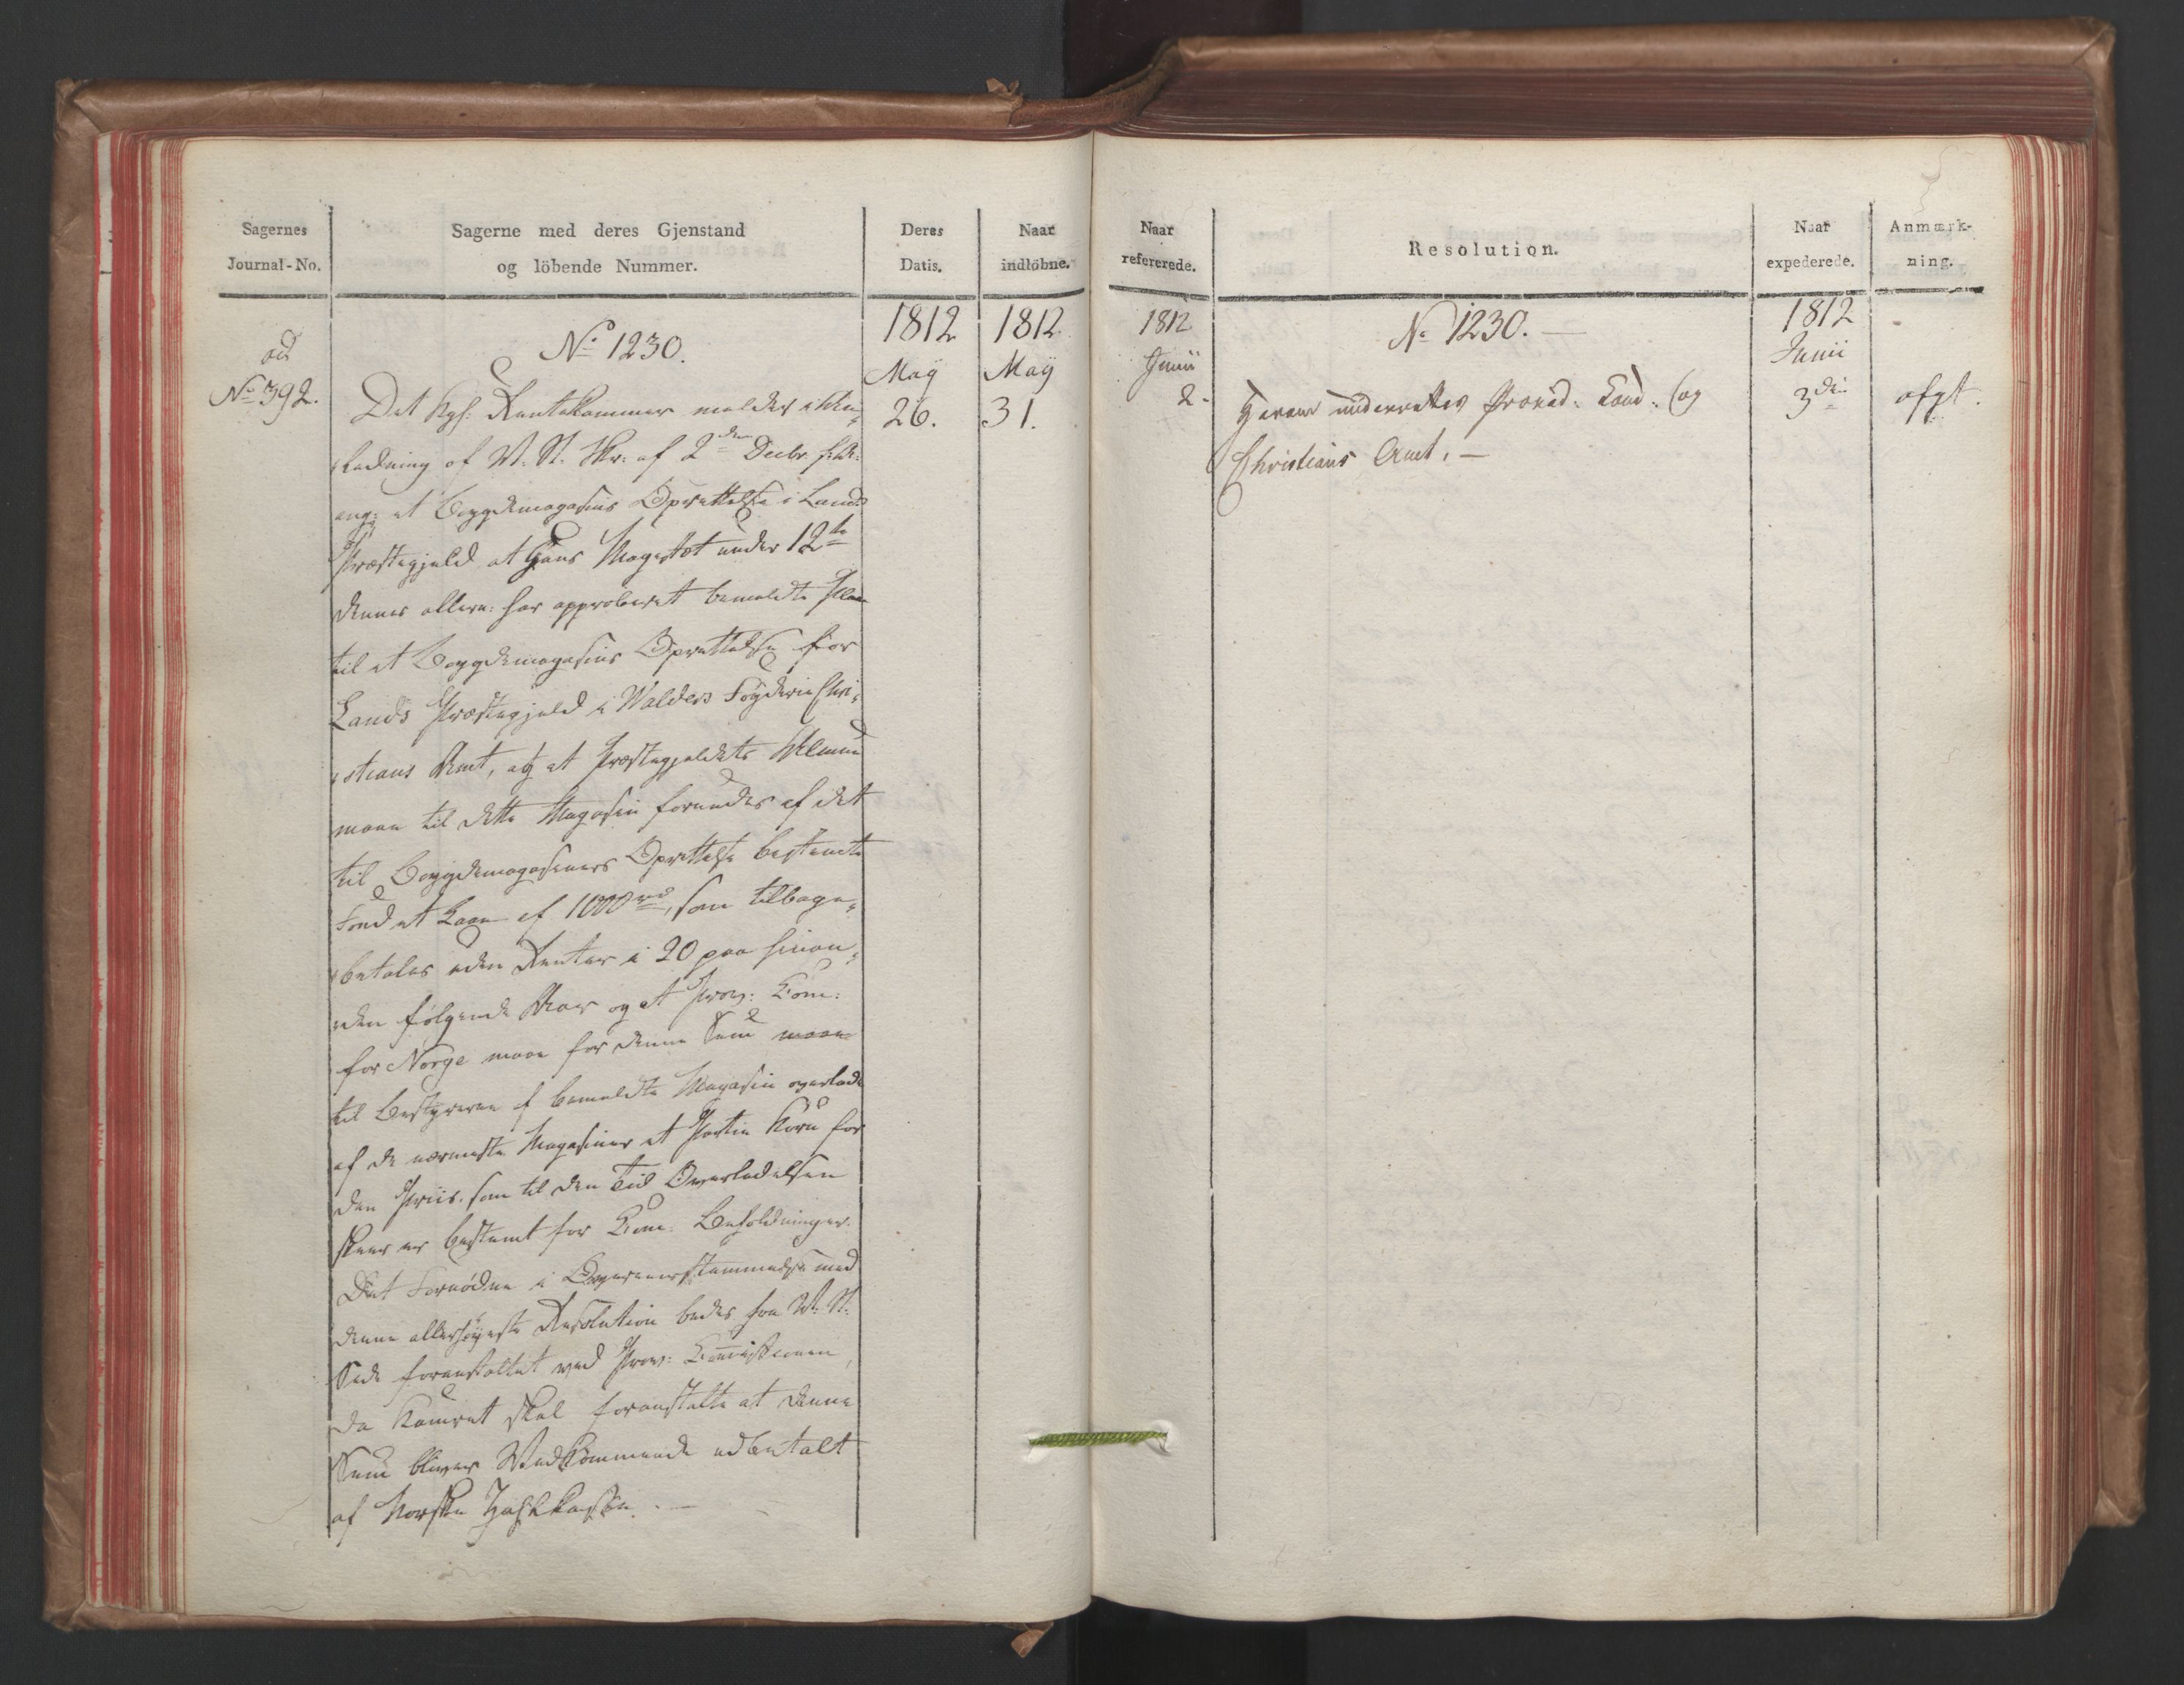 Sagernes
Journal-No.
Sagerne med deres Gjenstand
og löbende Nummer.
Deres
Datis.
Naar
indløbne.
ad
No 392.
No 1230.
1812
May
26.
1812
May
31.
Det Kgl: Rentekammer melder i An-
ledning af V. St. Skr. af 2den Decbr. f. A.
ang: et Bøygdemagasins Oprettelse i Lands
Præstegjeld at Hans Majestæt under 12te
dennes allern: har approberet bemeldte Plan
til et Bøygdemagasins Oprettelse for
Lands Præstegjeld i Walders Fogderie Chri-
stians Amt, og at Præstegjeldets Almue
maae til dette Magasin forundes af det
til Bøygdemagasiners Oprettelse bestemte
Fond et Laan af 1000 rd, som tilbage-
betales uden Renter i 20 paa hinan-
den følgende Aar og at Prov: Com:
for Norge maae for denne Sum maae
til Bestyreren af bemeldte Magasin overlade
af de nærmeste Magasiner et Partie Korn for
den Priis som til den Tid Overladelsen
skeer er bestemt for Com: Beholdninger.
Det Fornødne i Overeensstemmelse med
denne allerhøyeste Resolution bedes fra V. St.
Side foranstaltet ved Prov: Commissionen,
da Kamret skal foranstalte at denne
Sum bliver Vedkommende udbetalt
af Norske Zahlkasse. —
Naar
refererede.
Resolution.
Naar
expederede.
Anmærk-
ning.
1812
Junii
2.
No 1230. —
1812
Junii
3die
Herom underrettes Proviid. Com. og
Christians Amt. —
afgt.